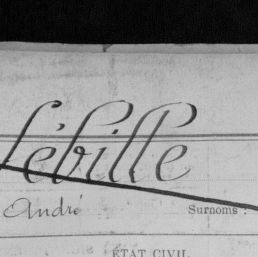 Lébille
André Surnoms :
ÉTAT CIVIL